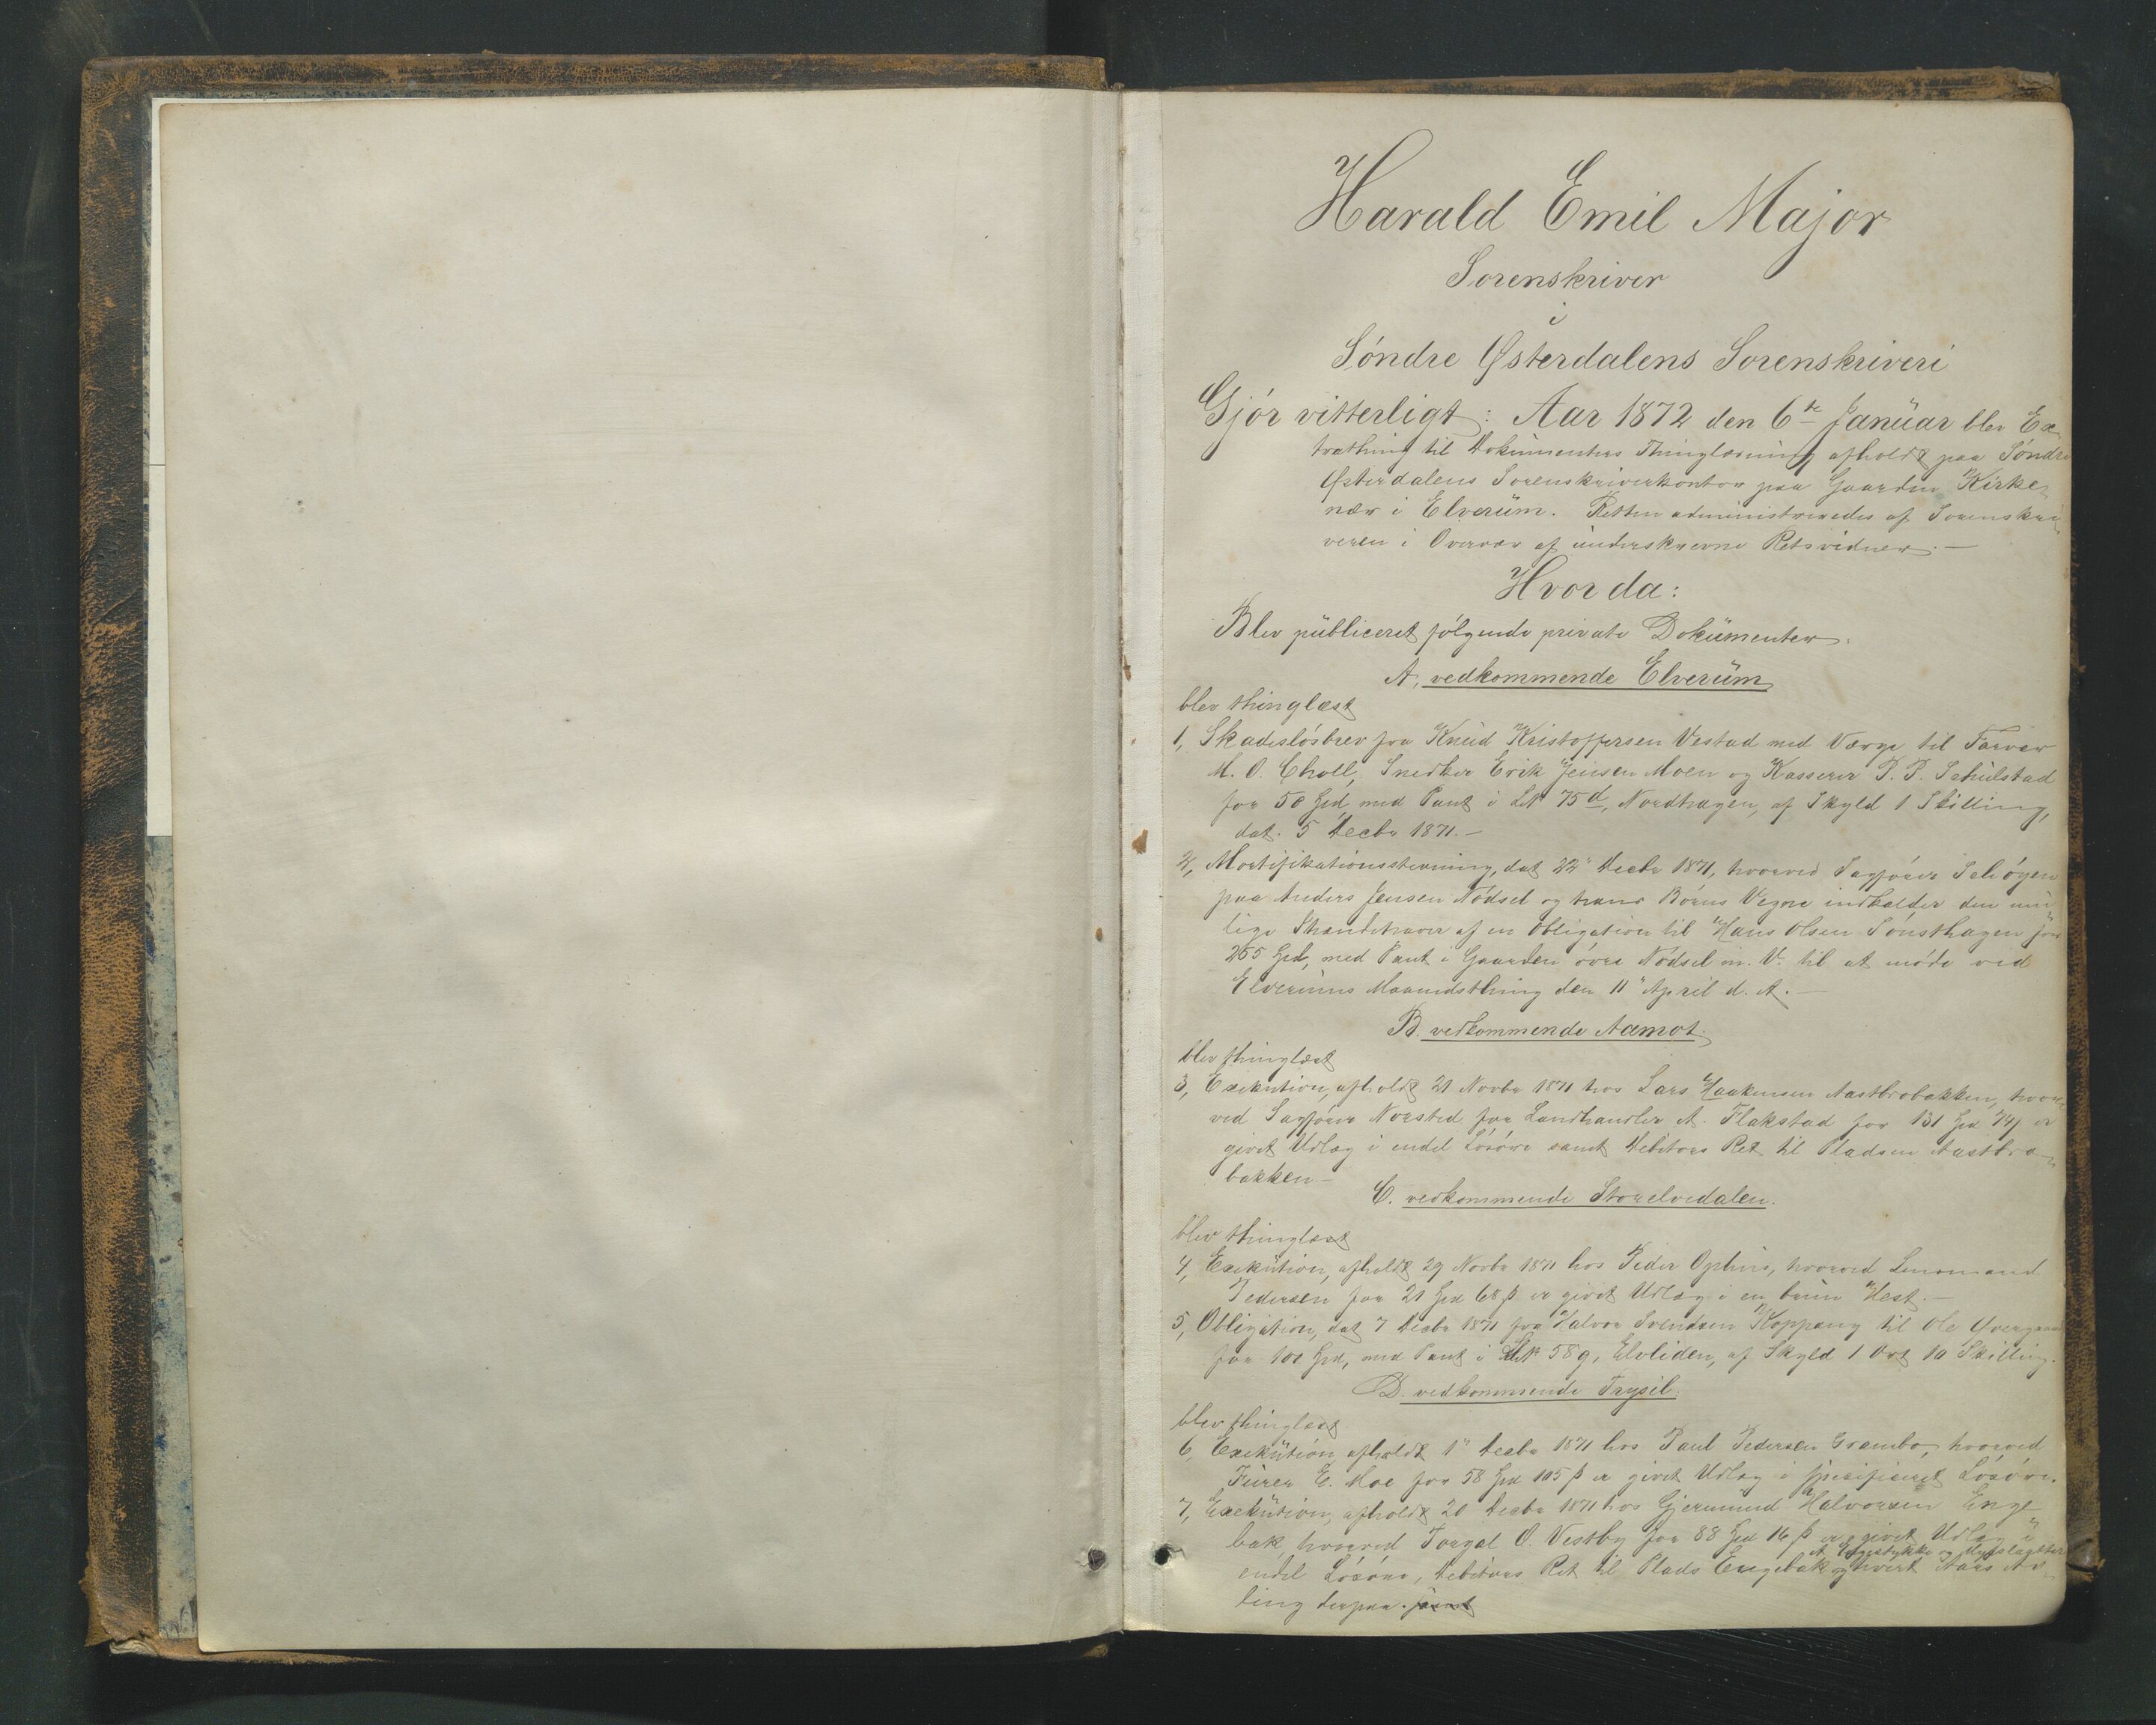 Harald Emil Major
Sorenskriver
i
Söndre Østerdalens Sorenskriveri
Gjör vitterligt: Aar 1872 den 6te Januar blev Ex
trathing til Dokumenters Thinglæsning afholdt paa Söndre
Østerdalens Sorenskriverkontor paa Gaarden Kirke
nær i Elverum. Retten administreredes af Sorenskri
veren i Overvær af underskrevne Retsvidner.—
Hvor da:
Blev publiceret følgende private Dokumenter:
A, vedkommende Elverum
blev thinglæst
1, Skadeslösbrev fra Knud Kristoffersen Vestad med Værge til Farver
M. O. Choll, Snedker Erik Jensen Moen og Kasserer P. P. Schulstad
for 50 Spd, med Pant i LN 75d, Nordhagen, af Skyld 1 Skilling,
dat. 5 Decbr 1871.—
2, Mortifikationsstevning, dat 22 Decbr 1871, hvorved Sagförer Schögen
paa Anders Jensen Nödsel og hans Börns Vegne indkalder den mu
lige Ihændehaver af en Obligation til Hans Olsen Sönsthagen for
255 Spd, med Pant i Gaarden övre Nödsel m. V. til at möde ved
Elverums Maanedsthing den 11 April d. A.—
B. vedkommende Aamot.
blev thinglæst
3, Exekution, afholdt 21 Novbr 1871 hos Lars Haakensen Aastbrobakken, hvor
ved Sagförer Norsted for Landhandler A. Flakstad for 131 Spd 74 er
givet Udlæg i endel Lösöre samt Debitors Ret til Pladsen Aastbro
bakken—
C. vedkommende Storelvedalen.
blev thinglæst
4, Exekution, afholdt 29 Novbr 1871 hos Peder Ophus, hvorved Lensmand
Pedersen for 21 Spd 68 ß er givet Udlæg i en brun Hest.—
5, Obligation, dat 7 Decbr 1871 fra Halvor Svendsen Koppang til Ole Övergaard
for 100 Spd, med Pant i LN 58g, Elvliden, af Skyld 1 Ort 10 Skilling.
D. vedkommende Trysil.
blev thinglæst
6, Exekution, afholdt 1 Decbr 1871 hos Paul Pedersen Grambo, hvorved
Furer E. Moe for 58 Spd 105 ß er givet Udlæg i specificeret Lösöre.
7, Exekution, afholdt 20 Decbr 1871 hos Gjermund Halvorsen Enge
bak, hvorved Torgal O. Vestby for 88 Spd 16 ß er givet Udlæg i
endel Lösöre, Debitors Ret til Plads Engebak og hvert Aars Av
ling derpaa. samt